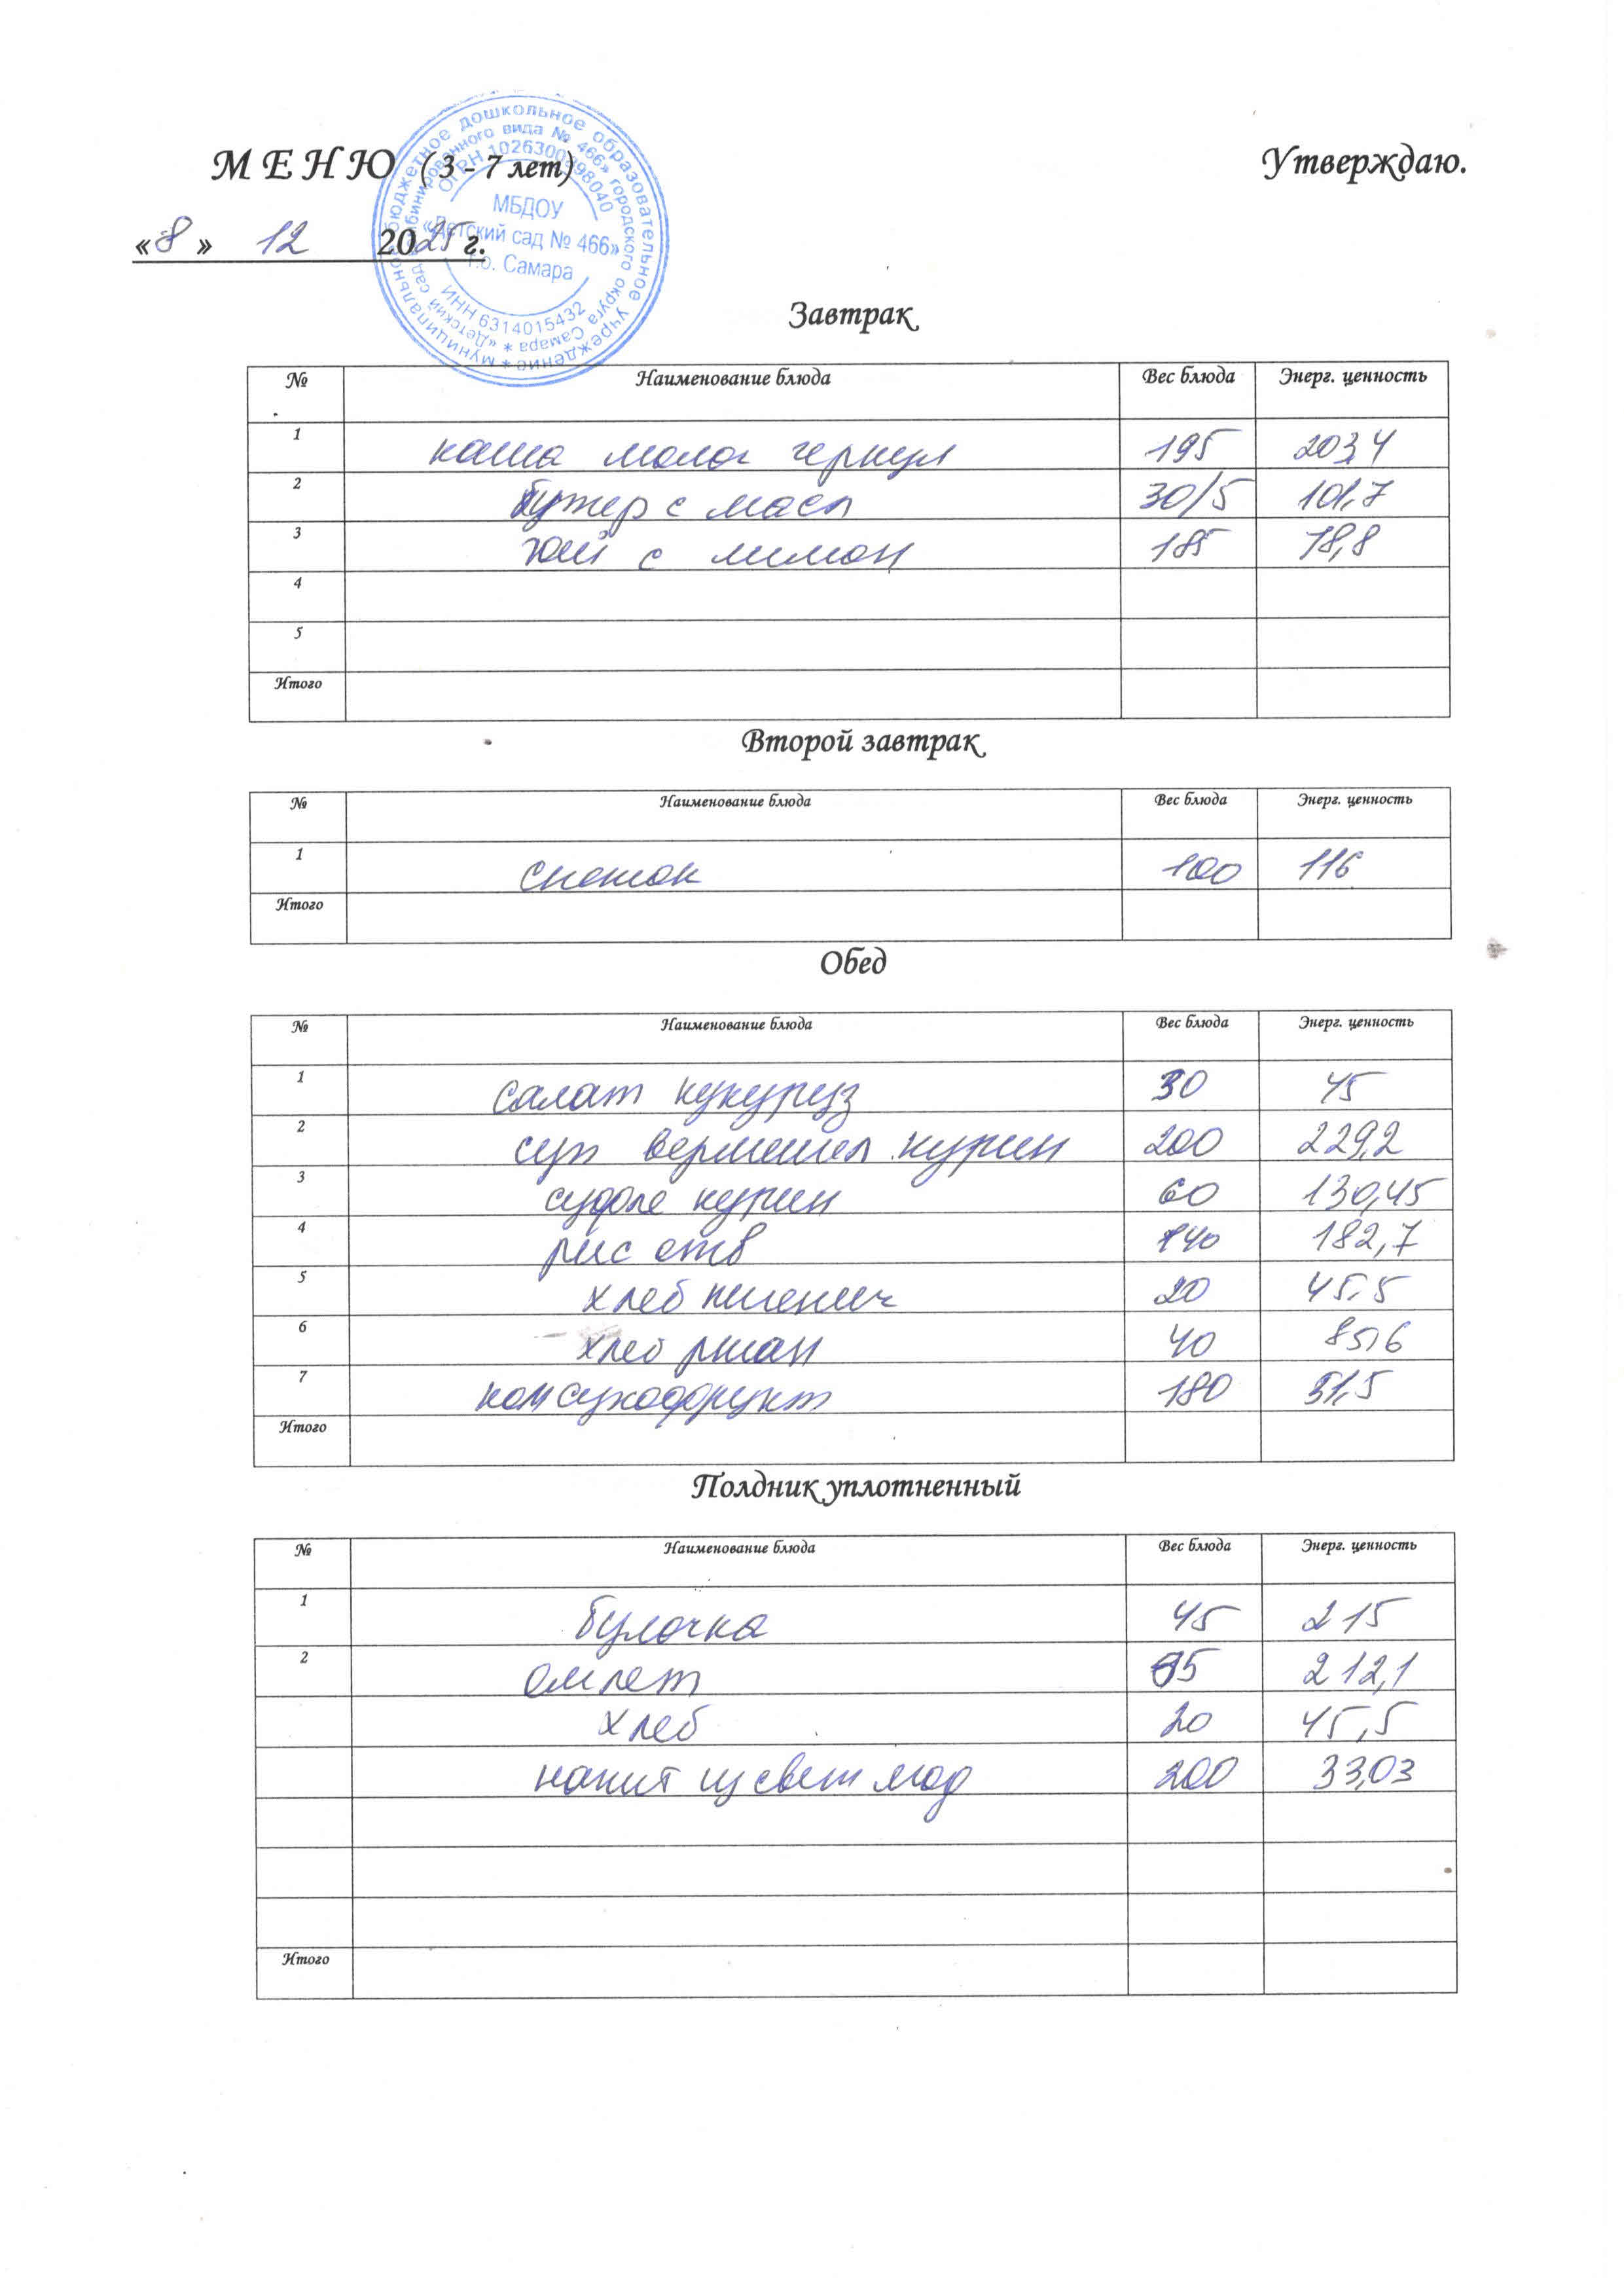 М Е Н Ю (3 - 7 лет) Утверждаю.
муниципальное бюджетное дошкольное образовательное учреждение *
«Детский сад комбинированного вида № 466» городского округа Самара *
ОГРН 1026300898040
МБДОУ
«Детский сад № 466»
г.о. Самара
ИНН 6314015432
«8» 12 2025 г.
Завтрак
№ Наименование блюда Вес блюда Энерг. ценность
1 каша молоч геркул 195 203,4
2 бутер с масл 30/5 101,7
3 чай с лимон 185 18,8
4
5
Итого
Второй завтрак
№ Наименование блюда Вес блюда Энерг. ценность
1 снежок 100 116
Итого
Обед
№ Наименование блюда Вес блюда Энерг. ценность
1 салат кукуруз 30 45
2 суп вермишел курин 200 229,2
3 суфле курин 60 130,45
4 рис отв 140 182,7
5 хлеб пшенич 20 45,5
6 хлеб ржан 40 85,6
7 ком сухофрукт 180 51,5
Итого
Полдник уплотненный
№ Наименование блюда Вес блюда Энерг. ценность
1 булочка 45 215
2 омлет 95 212,1
хлеб 20 45,5
напит из свеж ягод 200 33,03
Итого